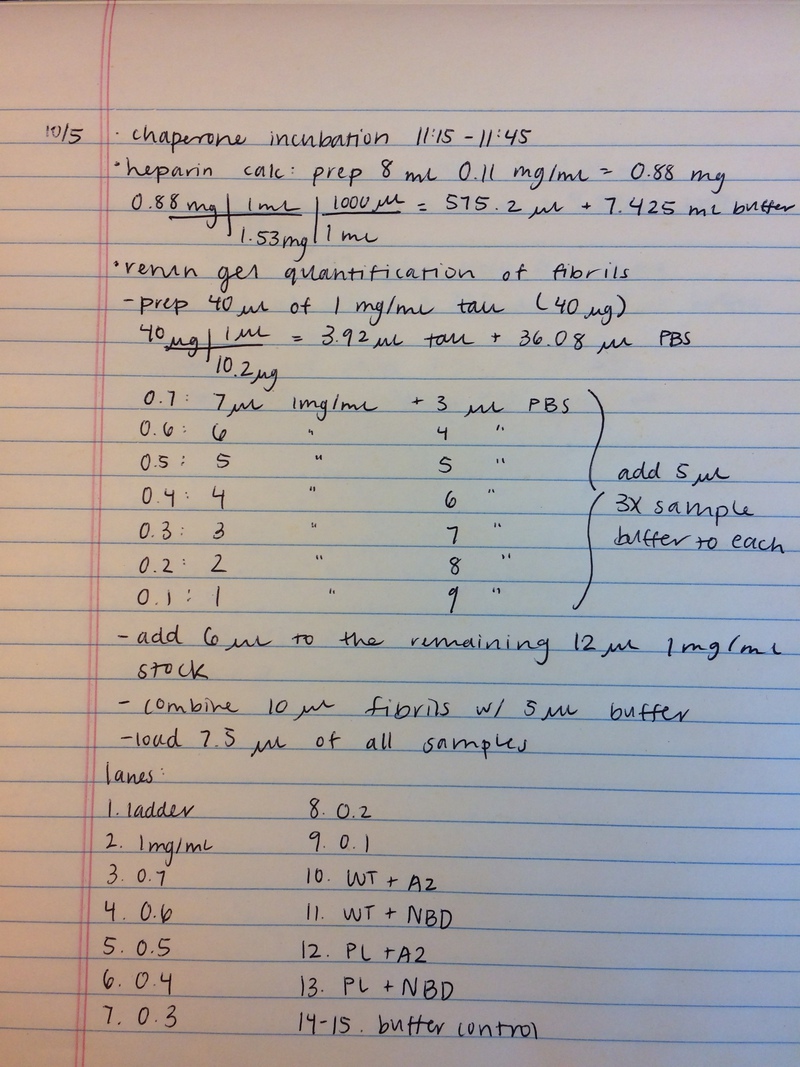 10/5 · chaperone incubation 11:15 - 11:45
· heparin calc: prep 8 ml 0.11 mg/ml = 0.88 mg
0.88 mg | 1 mL | 1000 µl = 575.2 µl + 7.425 ml buffer
1.53 mg | 1 ml
· rerun gel quantification of fibrils
- prep 40 µl of 1 mg/ml tau (40 µg)
40 µg | 1 µl = 3.92 µl tau + 36.08 µl PBS
10.2 µg
0.7: 7 µl 1mg/ml + 3 µl PBS
0.6: 6 " 4 "
0.5: 5 " 5 "
0.4: 4 " 6 "
0.3: 3 " 7 "
0.2: 2 " 8 "
0.1: 1 " 9 "
add 5 µl
3X sample
buffer to each
- add 6 µl to the remaining 12 µl 1 mg/ml
stock
- combine 10 µl fibrils w/ 5 µl buffer
- load 7.5 µl of all samples
lanes:
1. ladder
2. 1mg/mL
3. 0.7
4. 0.6
5. 0.5
6. 0.4
7. 0.3
8. 0.2
9. 0.1
10. WT + A2
11. WT + NBD
12. PL + A2
13. PL + NBD
14-15. buffer control